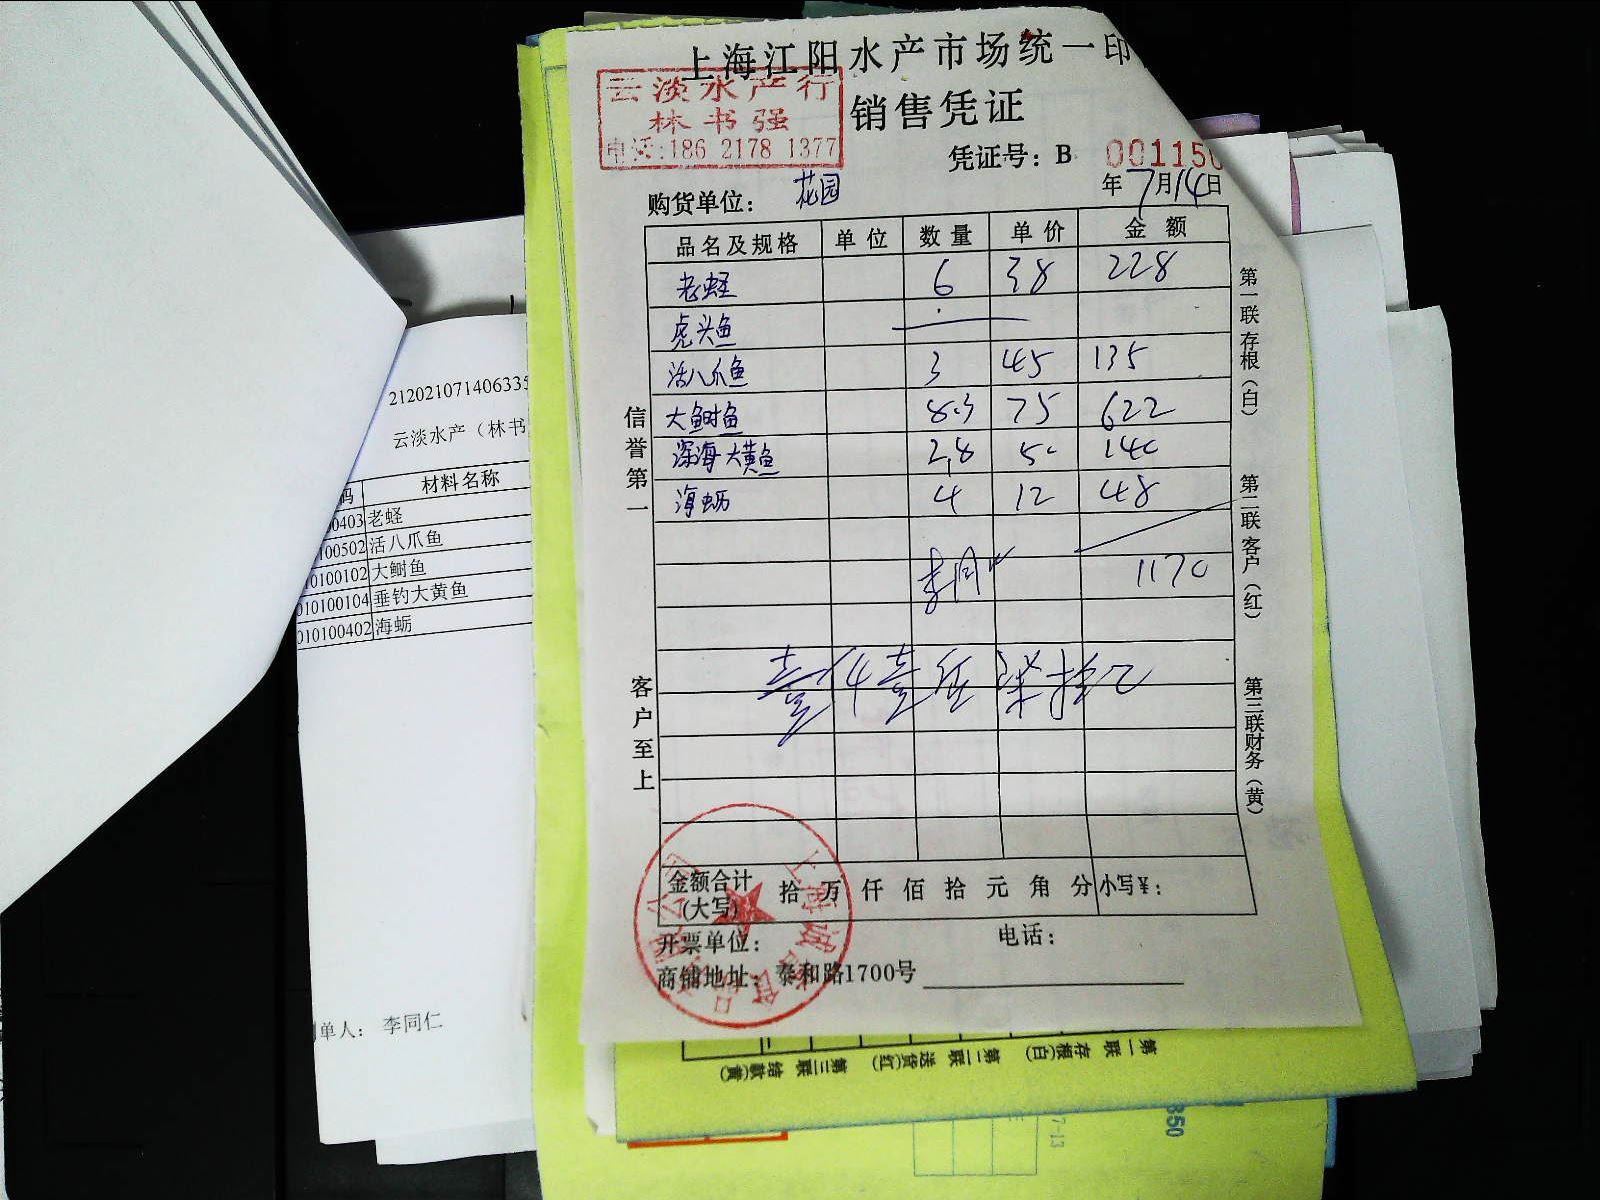 上海江阳水产市场统一印
云淡水产行
林书强
电话:186 2178 1377
销售凭证
凭证号：B 001150
年7月14日
购货单位： 花园
品名及规格 单位 数量 单价 金额
老蛏 6 38 228
虎头鱼
活八爪鱼 3 45 135
大鲥鱼 8.3 75 622
深海大黄鱼 2.8 50 140
海蛎 4 12 48
1170
壹仟壹佰柒拾元
信誉第一
客户至上
第一联存根（白）
第二联客户（红）
第三联财务（黄）
金额合计(大写) 拾 万 仟 佰 拾 元 角 分 小写￥：
开票单位： 电话：
商铺地址： 泰和路1700号
212021071406335
云淡水产（林书
码 材料名称
0403 老蛏
100502 活八爪鱼
10100102 大鲥鱼
010100104 垂钓大黄鱼
010100402 海蛎
单人： 李同仁
第一联 存根(白) 第二联 送货(红) 第三联 结款(黄)
7-13
350